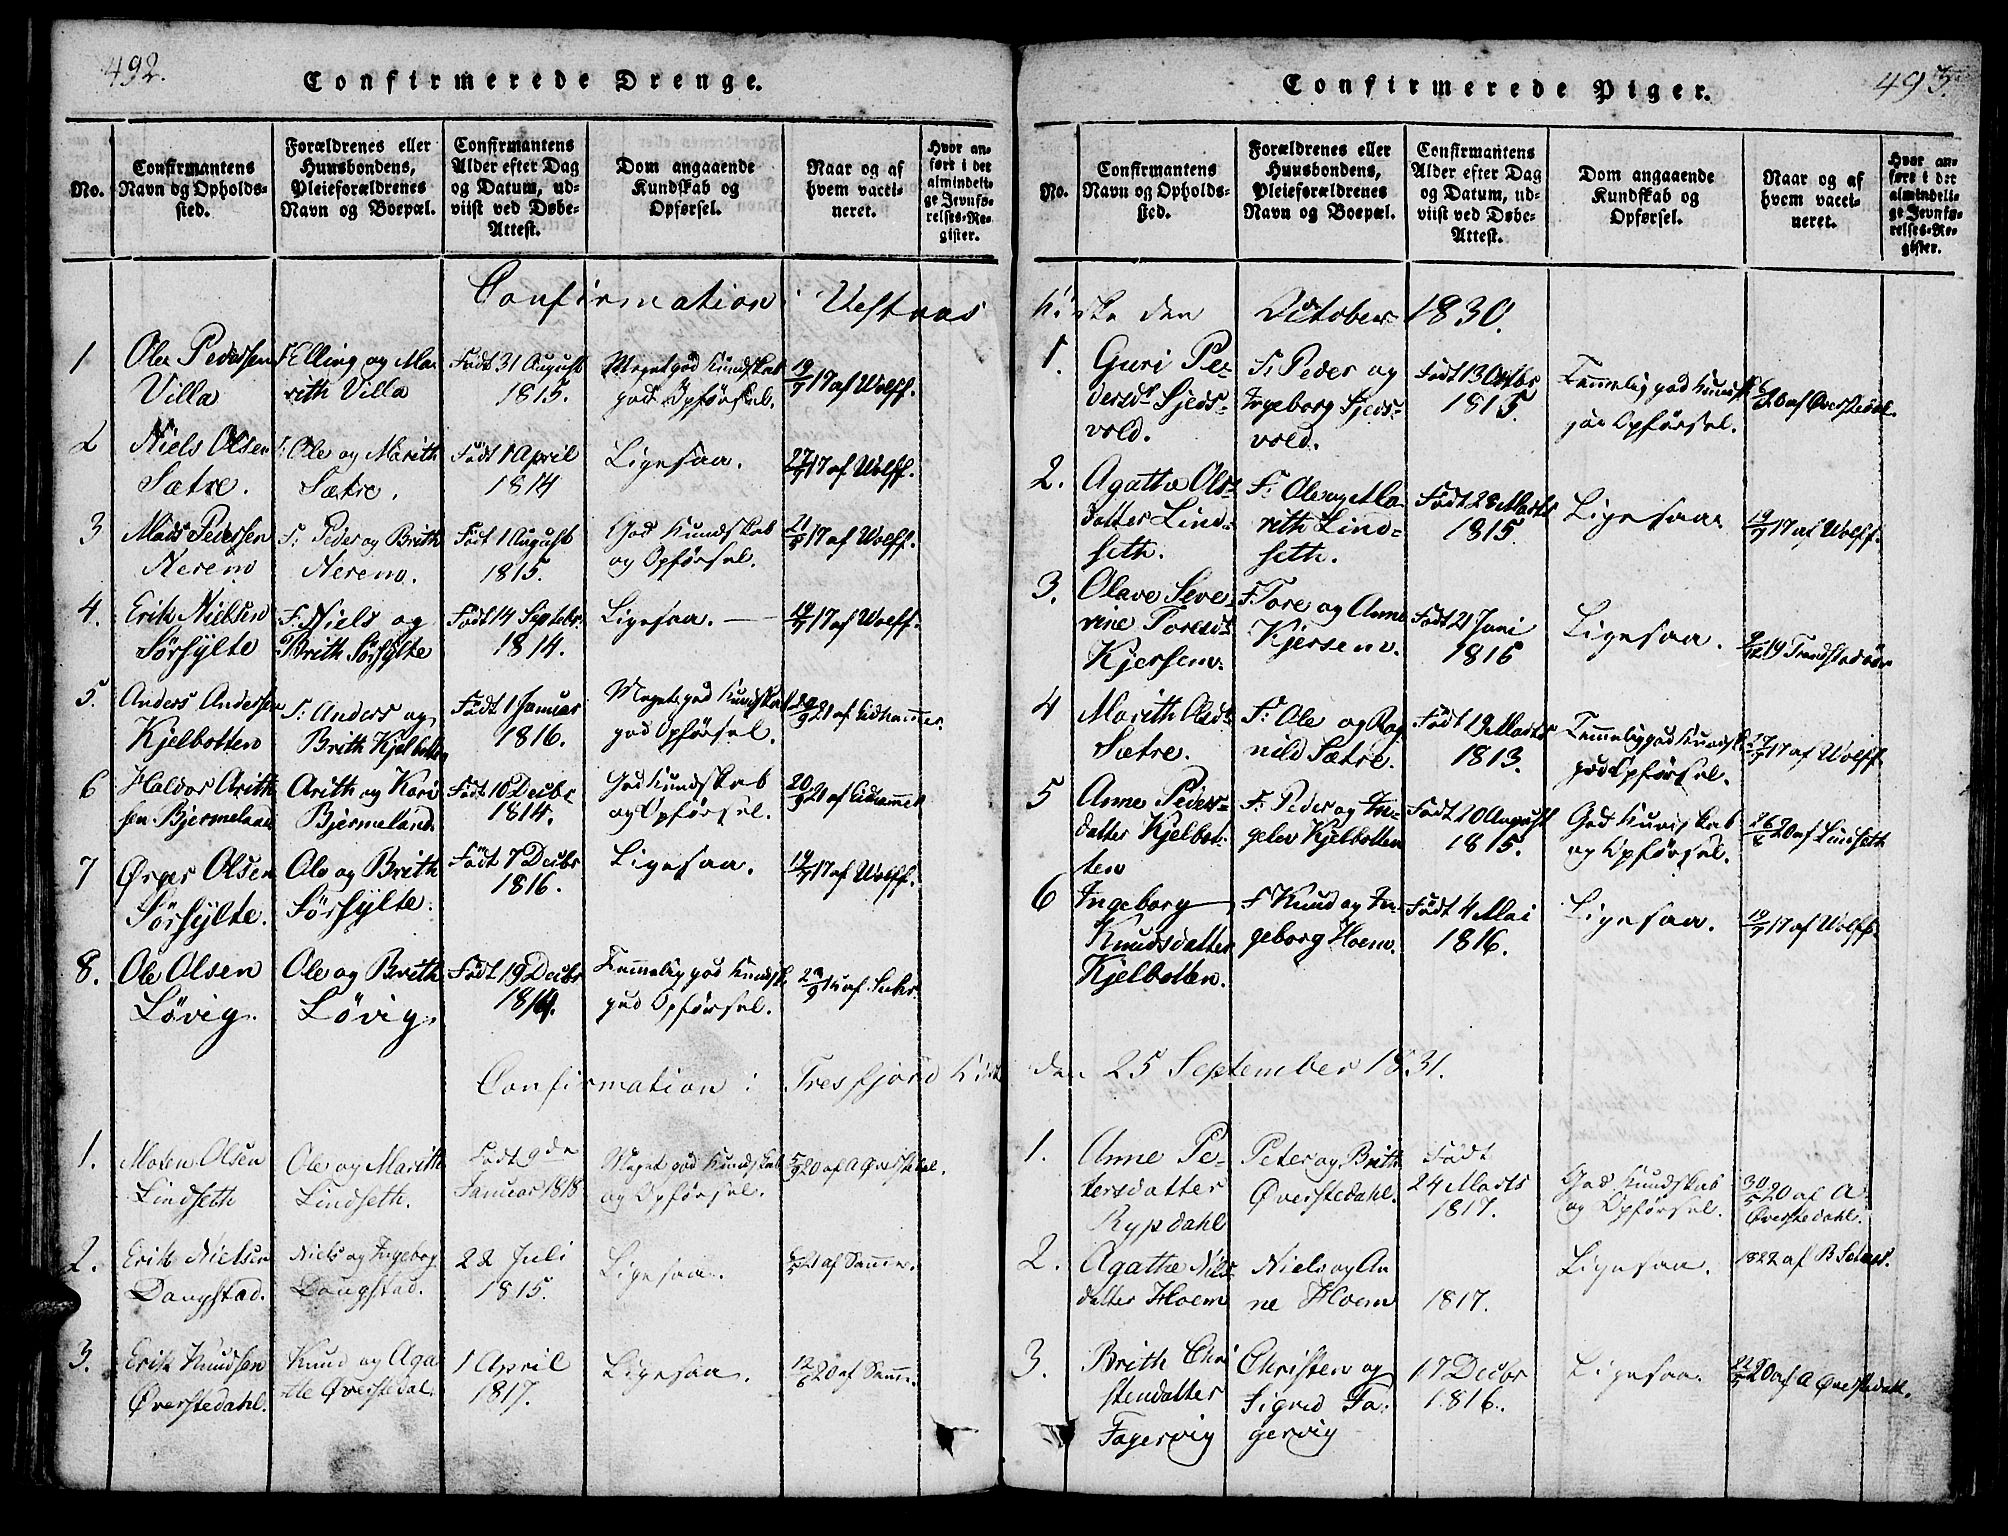 492.
Confirmerede Drenge.
No.
Confirmantens
Navn og Opholds-
sted.
Forældrenes eller
Huusbondens,
Pleieforældrenes
Navn og Boepæl.
Confirmantens
Alder efter Dag
og Datum, ud-
viist ved Døbe-
Attest.
Dom angaaende
Kundskab og
Opførsel.
Naar og af
hvem vacci-
neret.
Hvor an-
ført i det
almindeli-
ge Jevnfø-
relses-Re-
gister.
Confirmation i Vestnas
1
Ole Pedersen
Villa
F: Elling og Ma
rith Villa
Født 31 August
1815.
Meget god Kundskab
god Opførsel.
19/7 17 af Wolff.
2
Niels Olsen
Sætre.
F: Ole og Marith
Sætre.
Født 1 April
1814
Ligesaa.
17 af Wolff.
3
Mads Pedersen
Nerem
F: Peder og Brith
Nerem.
Født 1 August
1815.
God Kundskab
og Opførsel.
17 af Wolff.
4.
Erik Nielsen
Sørsylte
F: Niels og
Brith Sørsylte
Født 14 Septebr.
1814.
Ligesaa. —
19/7 17 af Wolff.
5.
Anders Andersen
Kjelbotten
F: Anders og
Brith Kjelbotten
Født 1 Januar
1816.
Meget god Kundskab
god Opførsel.
21 af Lidhammer.
6
Haldor Arith
sen Bjermeland
Arith og Kari
Bjermeland.
Født 10 Decbr
1814.
God Kundskab
og Opførsel.
20/9 21 af
7
Ørger Olsen
Sørsylte.
Ole og Brith
Sørsylte.
Født 7 Decbr
1816.
Ligesaa.
19/7 17 af Wolff.
8.
Ole Olsen
Løvig.
Ole og Brith
Løvig.
Født 19 Decbr
1814.
Temmelig god Kundsk.
god Opførsel.
Confirmation i Tresfjord Kirke
1.
Mosen Olsen
Lindseth
Ole og Marith
Lindseth.
Født 9de
Januar 1818
Meget god Kundskab
og Opførsel.
5/9 20 af A Øverstedal.
2.
Erik Nielsen
Dougstad.
Niels og Ingebor
Dougstad.
22 Juli
1815.
Ligesaa.
21 af
3.
Erik Knudsen
Øverstedahl.
Knud og Aga
the Øverstedal.
1 April
1817.
Ligesaa.
20 af
493.
Confirmerede Piger.
No.
Confirmantens
Navn og Opholds-
sted.
Forældrenes eller
Huusbondens,
Pleieforældrenes
Navn og Boepæl.
Confirmantens
Alder efter Dag
og Datum, ud-
viist ved Døbe-
Attest.
Dom angaaende
Kundskab og
Opførsel.
Naar og af
hvem vacci-
neret.
Hvor an-
ført i det
almindeli-
ge Jevnfø-
relses-Re-
gister.
Kirke den October 1830.
1.
Guri Pe-
dersd: Sjeds-
vold.
F: Peder og
Ingeborg Sjeds-
vold.
Født 13 Octbr
1815.
Temmelig god Kundsk
god Opførsel.
20 af Øverstedal.
2.
Agathe Ols-
datter Lind-
seth.
F: Ole og Ma-
rith Lind-
seth.
Født 28 Marts
1815.
Ligesaa
19/7 17 af Wolff.
3.
Olave Seve-
rine Toresd:
Kjersem.
F Tore og Anne
Kjersem.
Født 21 Juni
1816
Ligesaa.
19
4
Marith Olsd:
Sætre.
F: Ole og Rag
nild Sætre.
Født 13 Marts
1813.
Temmelig god Kundsk
god Opførsel.
17 af Wolff
5
Anne Peders-
datter Kjelbot-
ten
F: Peder og In-
gelev Kjelbotten
Født 10 August
1815.
God Kundskab
og Opførsel.
20 af Lindseth
6
Ingeborg
Knudsdatter
Kjelbotten.
F Knud og In-
geborg Hoem.
Født 4 Mai
1816.
Ligesaa.
19/7 17 af Wolff
den 25 September 1831.
1.
Anne Pe-
tersdatter
Rypdahl
Peter og Brith
Øverstedahl.
Født
24 Marts
1817.
God Kundskab
og Opførsel.
30/5 20 af A
Øverstedahl.
2.
Agathe Nils-
datter Hoem
Niels og An
ne Hoem
1817.
Ligesaa.
1822 af B
3.
Brith Chri
stendatter
Fagervig
Christen og
Sigrid Fa-
gervig
17 Decbr
1816.
Ligesaa.
20 af A Øverstedahl.